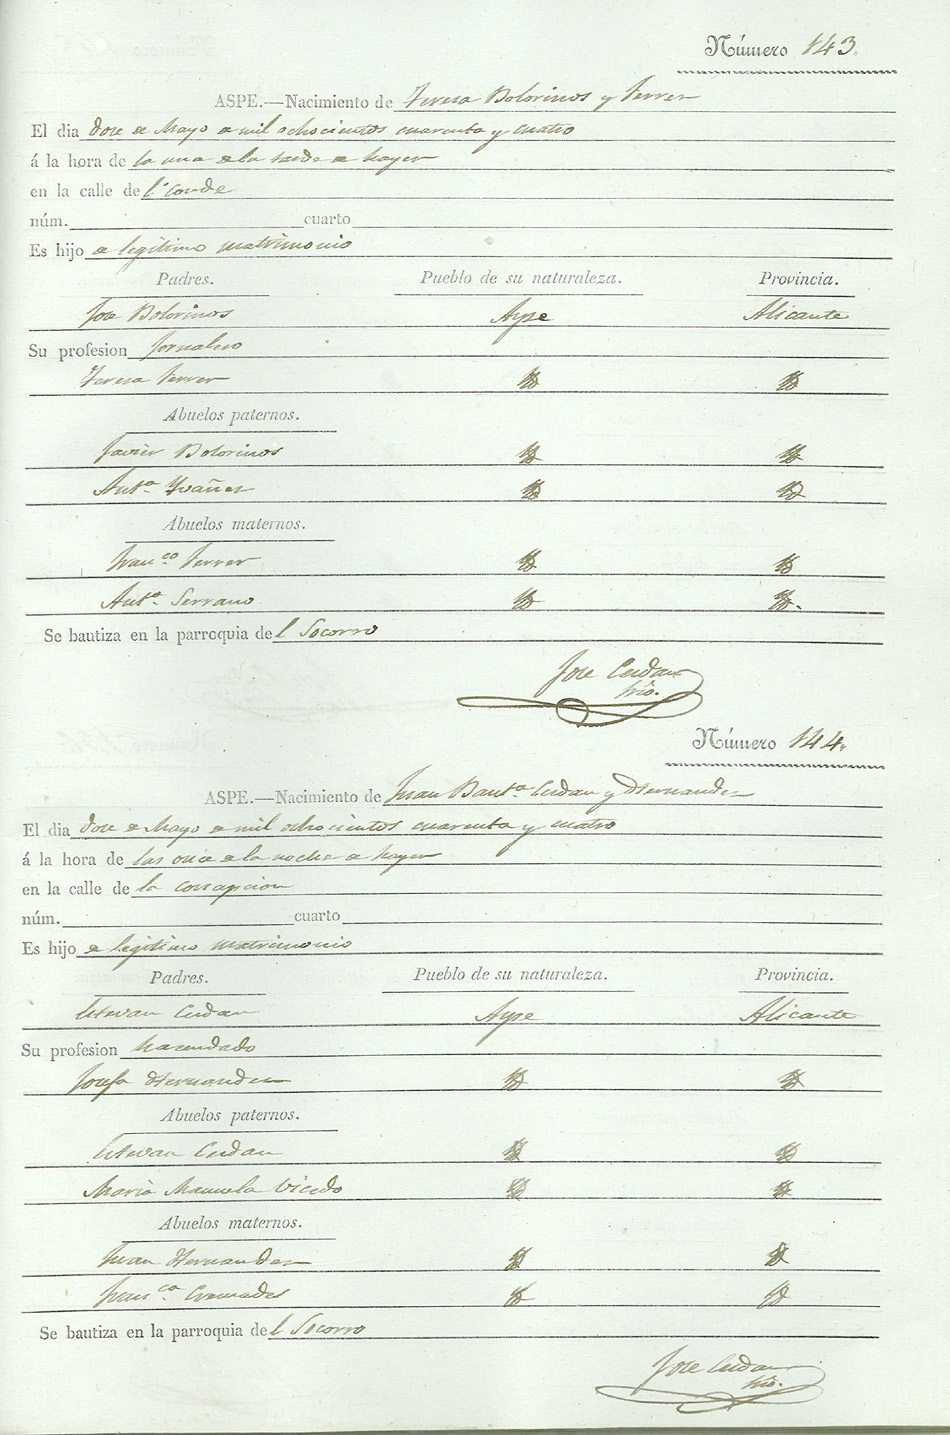 Número 143.
ASPE.—Nacimiento de Teresa Bolorinos y Ferrer
El dia doce de Mayo de mil ochocientos cuarenta y cuatro
á la hora de la una de la tarde de hayer
en la calle de l Conde
núm. cuarto
Es hijo de legitimo matrimonio
Padres. Pueblo de su naturaleza. Provincia.
Jose Bolorinos Aspe Alicante
Su profesion Jornalero
Teresa Ferrer Yd Yd
Abuelos paternos.
Javier Bolorinos Yd Yd
Antª Yvañes Yd Yd
Abuelos maternos.
Franco Ferrer Yd Yd
Antª Serrano Yd Yd.
Se bautiza en la parroquia del Socorro
Jose
Srio.
Número 144.
ASPE.—Nacimiento de Juan Bautª y Hernandez
El dia doce de Mayo de mil ochocientos cuarenta y cuatro
á la hora de las once de la noche de hayer
en la calle de la
núm. cuarto
Es hijo de legitimo matrimonio
Padres. Pueblo de su naturaleza. Provincia.
Estevan Aspe Alicante
Su profesion hacendado
Josefa Hernandez Yd Yd
Abuelos paternos.
Estevan Yd Yd
Maria Manuela Vicedo Yd Yd
Abuelos maternos.
Juan Hernandez Yd Yd
Franca Cremades Yd Yd
Se bautiza en la parroquia del Socorro
Jose
Srio.